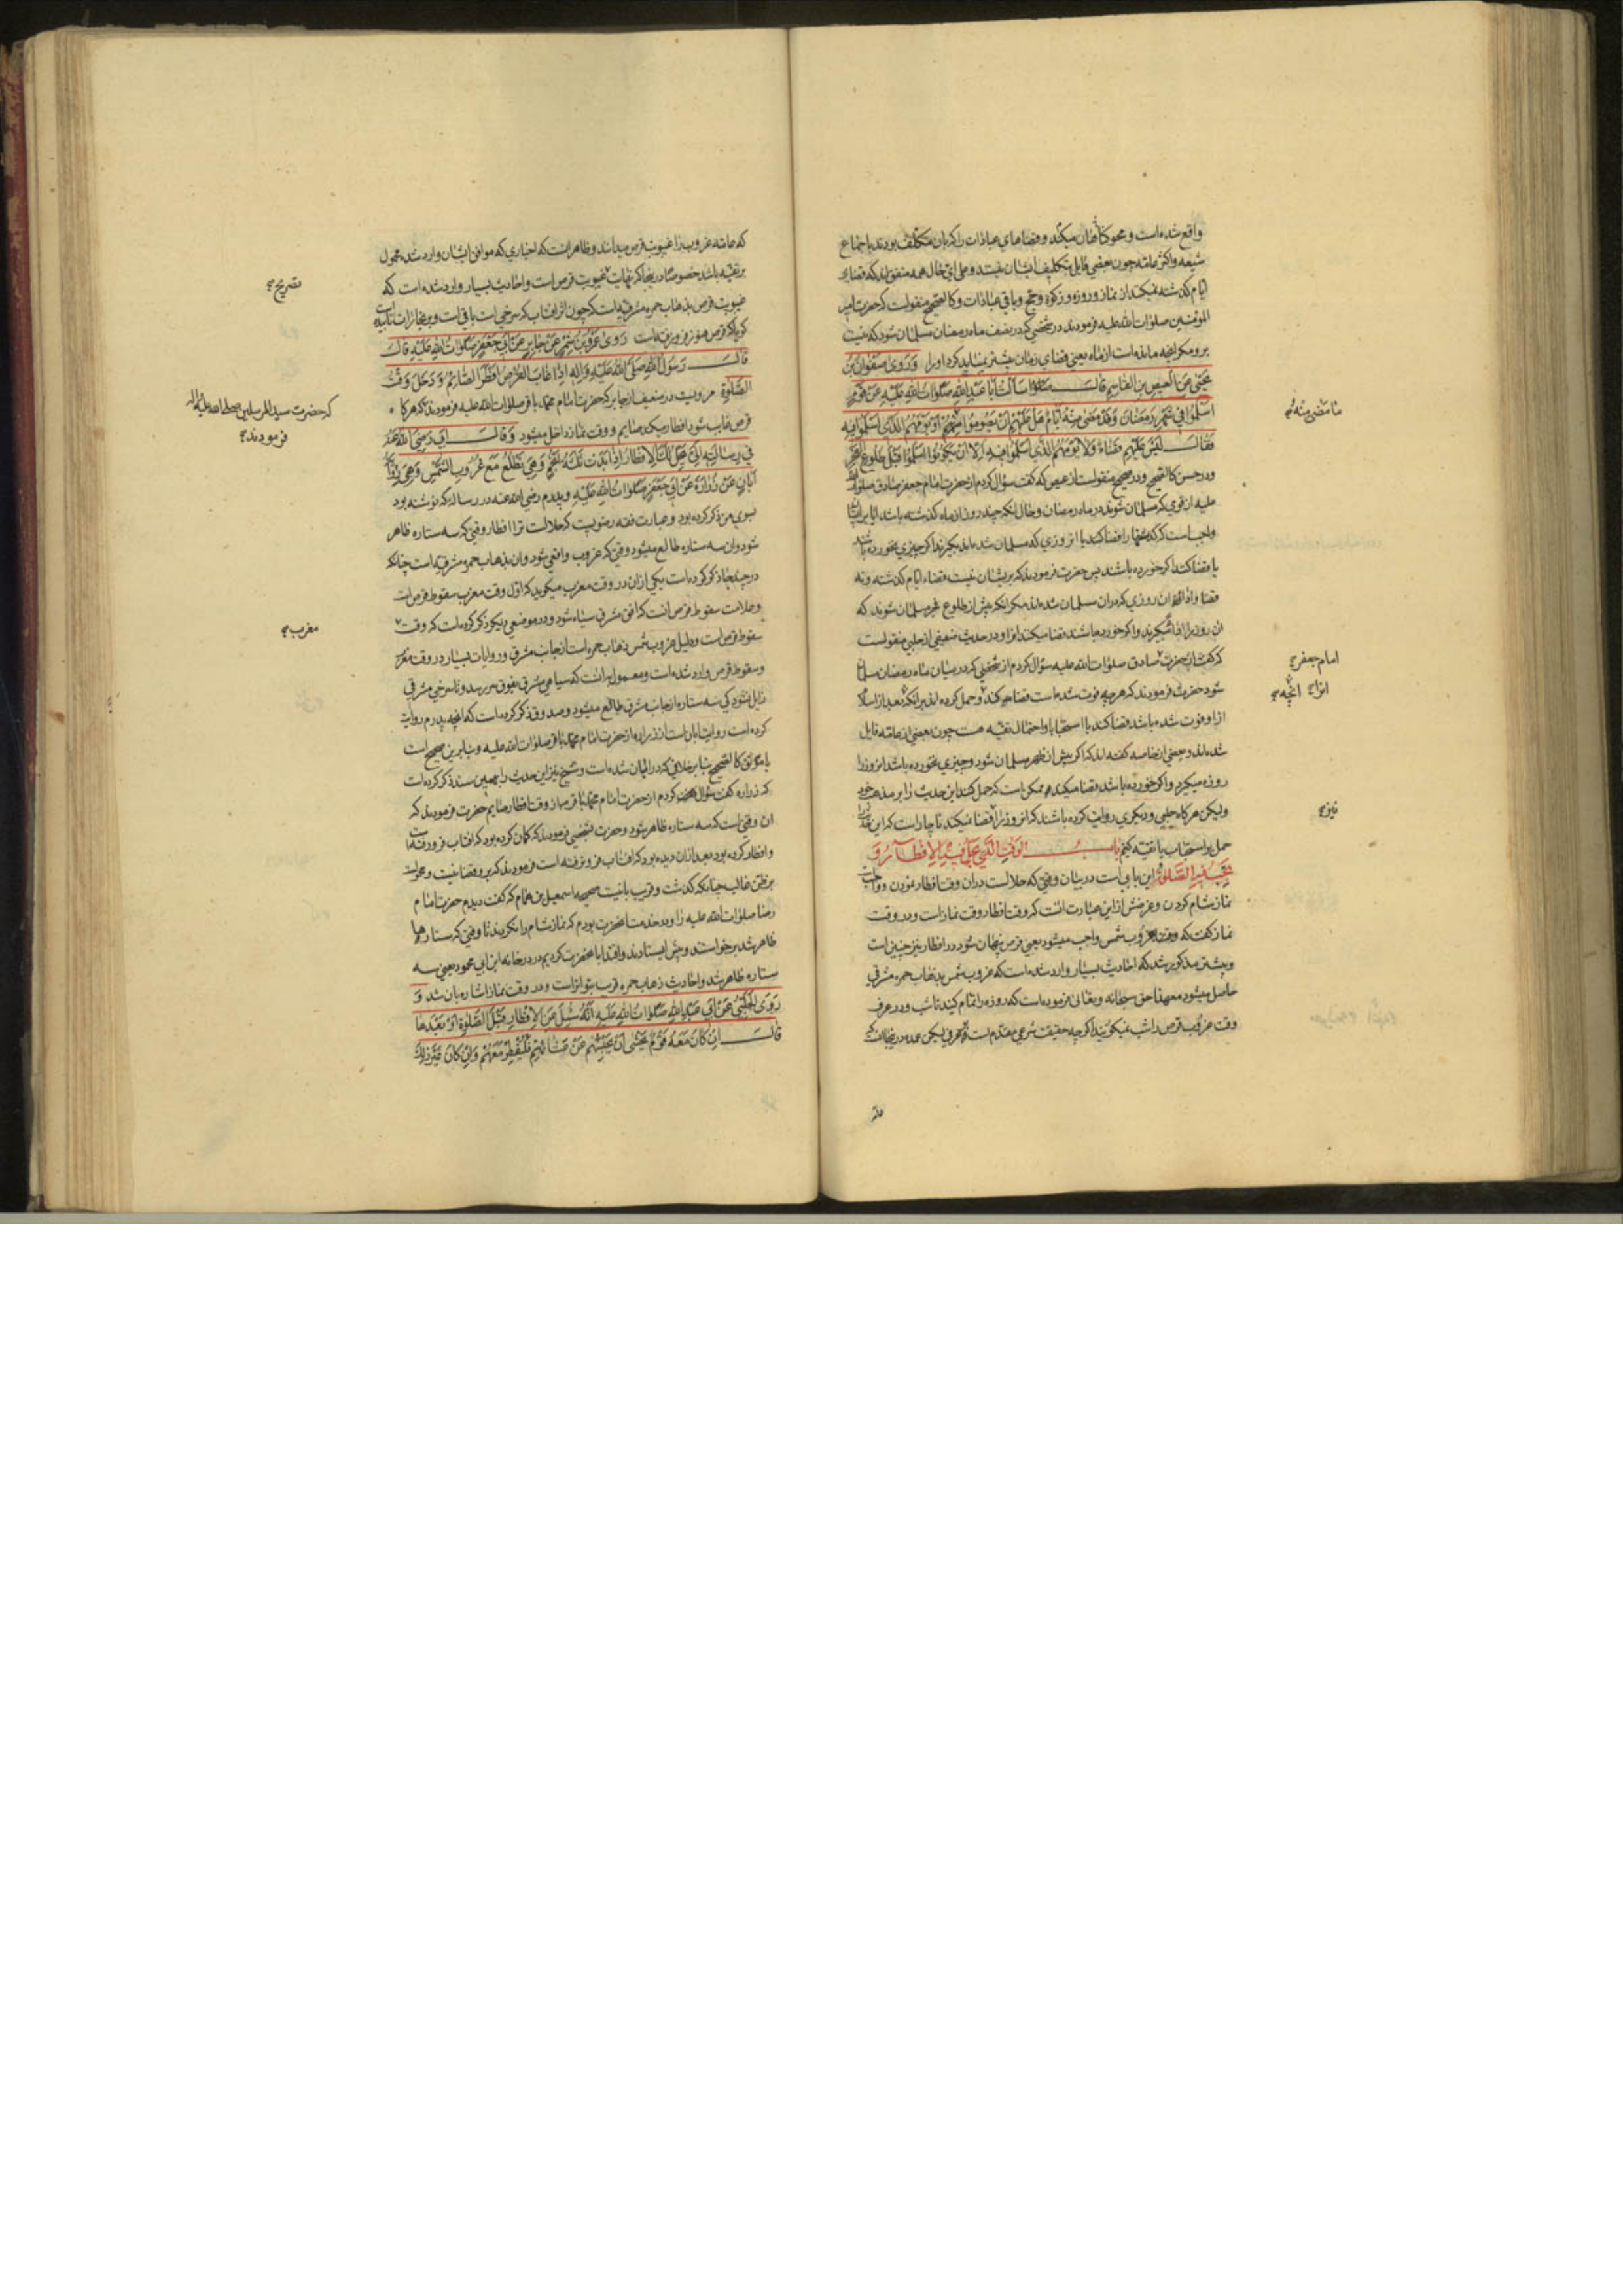 واقع شده است و محو کناهان میکند و قضاهای عبادات را که بان مکلّف بودند باجماع
شیعه و اکثر عامه چون بعضی قایل بتکلیف ایشان نیستند و علی ای حال همه متفق اند که قضای
ایام کذشته نمیکند از نماز و روزه و زکوة و حج و باقی عبادات و کالصحیح منقولست که حضرت امیر
المؤمنین صلوات الله علیه فرمودند در شخصی که در نصف ماه رمضان مسلمان شود که نیست
برو مکر انچه مانده است از ماه یعنی قضای زمان پیشتر نمیباید کرد او را وَرَوی صَفْوانُ بْنُ
یَحْیی عَنِ الْعیصِ بْنِ القاسِمِ قالَ سَاَلْتُ اَبا عَبْدِاللهِ صَلَواتُ اللهِ عَلَیْهِ عَنْ قَوْمٍ
اَسْلَمُوا فی شَهْرِ رَمَضانَ وَقَدْ مَضی مِنْهُ اَیّامٌ هَلْ عَلَیْهِمْ اَنْ یَصُومُوا اَوْ یَوْمَهُمُ الَّذی اَسْلَمُوا فیهِ
ما مَضی مِنْهُ
فَقالَ لَیْسَ عَلَیْهِمْ قَضاءٌ وَلا یَوْمَهُمُ الَّذی اَسْلَمُوا فیهِ اِلّا اَنْ یَکُونُوا اَسْلَمُوا قَبْلَ طُلُوعِ الْفَجْرِ
و در حسن کالصحیح و در صحیح منقولست از عیص که کفت سؤال کردم از حضرت امام جعفر صادق صلوات الله
علیه از قومی که مسلمان شوند در ماه رمضان و حال انکه چند روز از ماه کذشته باشد ایا بر ایشان
واجب است که کذشتها را قضا کنند یا انروزی که مسلمان شده اند بکیرند اکر چیزی نخورده باشند
یا قضا کنند اکر خورده باشند پس حضرت فرمودند که بریشان نیست قضاء ایام کذشته و نه
قضا و اداء ان روزی که دران مسلمان شده اند مکر انکه پیش از طلوع فجر مسلمان شوند که
ان روز را اداء میکیرند و اکر خورده باشند قضا میکنند انرا و در حدیث ضعیفی از حلبی منقولست
که کفت از حضرت صادق صلوات الله علیه سؤال کردم از شخصی که در میان ماه رمضان مسلمان
امام جعفر
شود حضرت فرمودند که هر چه فوت شده است قضا میکند و حمل کرده اند بر انکه بعد از اسلام
انرا انچه
از او فوت شده باشد قضا کند یا استحبابا و احتمال تقیه هست چون بعضی از عامه قایل
شده اند و بعضی از خاصه کفته اند که اکر پیش از ظهر مسلمان شود و چیزی نخورده باشد انروز را
روزه میکیرد و اکر خورده باشد قضا میکند و ممکن است که حمل کنند این حدیث را بر مذهب خود
ولیکن هرکاه حلبی و دیکری روایت کرده باشند که انروز را قضا نمیکند ناچار است که این
نیز
حمل بر استحباب یا تقیه کنیم بابُ الوَقْتِ الَّذی یَحِلُّ فیهِ الاِفْطارُ وَ
تَجِبُ فیهِ الصَّلوةُ این بابی است در بیان وقتی که حلالست دران وقت افطار نمودن و واجبست
نماز شام کردن و غرضش از این عبارت انست که وقت افطار وقت نماز است و در وقت
نماز کفت که وقت غروب شمس واجب میشود یعنی قرص پنهان شود در افطار نیز چنین است
و پیشتر مذکور شد که احادیث بسیار وارد شده است که غروب شمس بذهاب حمره مشرقی
حاصل میشود معهذا حق سبحانه و تعالی فرموده است که روزه را تمام کنید تا شب و در عرف
وقت غروب قرص را شب نمیکویند اکرچه حقیقت شرعی مقدم است بر عرفی لیکن عمده دریجا انست
که عامه غروب را غیبوبت قرص میدانند و ظاهر انست که اخباری که موافق ایشان وارد شده محمول
بر تقیه باشد خصوصا دریجا که نهایت غیبوبت قرص است و احادیث بسیار وارد شده است که
تصریح
غیبوبت قرص بذهاب حمره مشرقیه است که چون اثر افتاب که سرخی است باقی است
کویا که قرص هنوز فرو نرفته است رَوی عَمْرُو بْنُ شِمْرٍ عَنْ جابِرٍ عَنْ اَبی جَعْفَرٍ صَلَواتُ اللهِ عَلَیْهِ قالَ
قالَ رَسُولُ اللهِ صَلَّی اللهُ عَلَیْهِ وَالِهِ اِذا غابَ الْقُرْصُ اَفْطَرَ الصّائِمُ وَدَخَلَ وَقْتُ
الصَّلوةِ مرویست در ضعیف از جابر که حضرت امام محمد باقر صلوات الله علیه فرمودند که هرکاه
که حضرت سید المرسلین صلی الله علیه و اله
فرمودند
قرص غایب شود افطار میکند صایم و وقت نماز داخل میشود وَقالَ اَبی رَضِیَ اللهُ عَنْهُ
فی رِسالَتِهِ اِلَیَّ یَحِلُّ لَکَ الاِفْطارُ اِذا بَدَتْ ثَلثَةُ اَنْجُمٍ وَهِیَ تَطْلُعُ مَعَ غُرُوبِ الشَّمْسِ وَهِیَ رِوایَةُ
اَبانٍ عَنْ زُرارَةَ عَنْ اَبی جَعْفَرٍ صَلَواتُ اللهِ عَلَیْهِ و پدرم رضی الله عنه در رساله که نوشته بود
بسوی من ذکر کرده بود و عبارت فقه رضویست که حلالست ترا افطار وقتی که سه ستاره ظاهر
شود و ان سه ستاره طالع میشود وقتی که غروب واقعی شود و ان بذهاب حمره مشرقیه است چنانکه
در چند جا ذکر کرده است یکی ازان در وقت مغرب میکوید که اول وقت مغرب سقوط قرص است
و علامت سقوط قرص انست که افق مشرق سیاه شود و در موضعی دیکر ذکر کرده است که وقت
مغرب
سقوط قرص است و دلیل غروب شمس ذهاب حمره است از جانب مشرق و روایات بسیار در وقت مغرب
و سقوط قرص وارد شده است و معمول به انست که سیاهی مشرق بفوق سر رسد و تا سرخی مشرقی
زایل نشود کی سه ستاره از جانب مشرق طالع میشود و صدوق ذکر کرده است که انچه پدرم روایت
کرده است روایت ابان است از زراره از حضرت امام محمد باقر صلوات الله علیه و بنابرین صحیح است
یا موثق کالصحیح بنابر خلافی که در ابان شده است و شیخ نیز این حدیث را بهمین سند ذکر کرده است
که زراره کفت سؤال کردم از حضرت امام محمد باقر از وقت افطار صایم حضرت فرمودند که
ان وقتی است که سه ستاره ظاهر شود و حضرت بشخصی فرمودند که کمان کرده بود که افتاب فرو رفته است
و افطار کرده بود بعد ازان دیده بود که افتاب فرو نرفته است فرمودند که برو قضا نیست و محمولست
بر ظن غالب چنانکه کذشت و قریب باینست صحیحه اسمعیل بن همام که کفت دیدم حضرت امام
رضا صلوات الله علیه را و در خدمت انحضرت بودم که نماز شام را نکردند تا وقتی که ستارها
ظاهر شد برخواستند و پیش ایستادند و اقتدا بانحضرت کردیم در درخانه ابن ابی محمود یعنی سه
ستاره ظاهر شد و احادیث ذهاب حمره قریب بتواتر است و در وقت نماز اشاره بان شد وَ
رَوَی الْحَلَبِیُّ عَنْ اَبی عَبْدِاللهِ صَلَواتُ اللهِ عَلَیْهِ اَنَّهُ سُئِلَ عَنِ الاِفْطارِ قَبْلَ الصَّلوةِ اَوْ بَعْدَها
قالَ اِنْ کانَ مَعَهُ قَوْمٌ یَخْشی اَنْ یَحْبِسَهُمْ عَنْ عَشائِهِمْ فَلْیُفْطِرْ مَعَهُمْ وَاِنْ کانَ غَیْرَ ذلِکَ